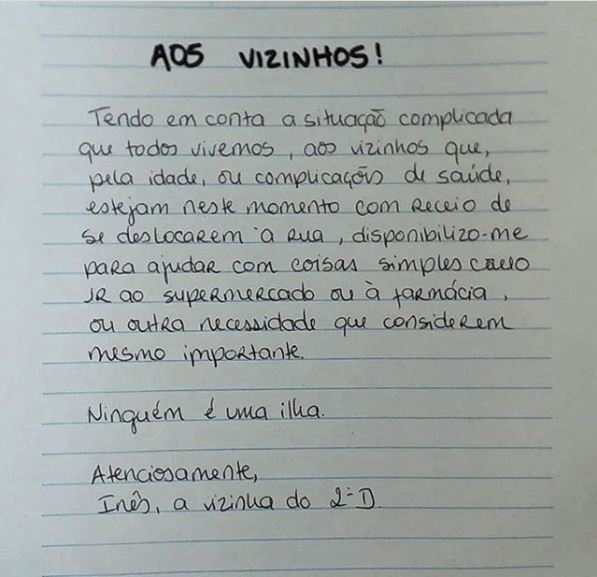 AOS VIZINHOS!
Tendo em conta a situação complicada
que todos vivemos, aos vizinhos que,
pela idade, ou complicações de saúde,
estejam neste momento com receio de
se deslocarem à rua, disponibilizo-me
para ajudar com coisas simples como
ir ao supermercado ou à farmácia,
ou outra necessidade que considerem
mesmo importante.
Ninguém é uma ilha.
Atenciosamente,
Inês, a vizinha do 2ºD.